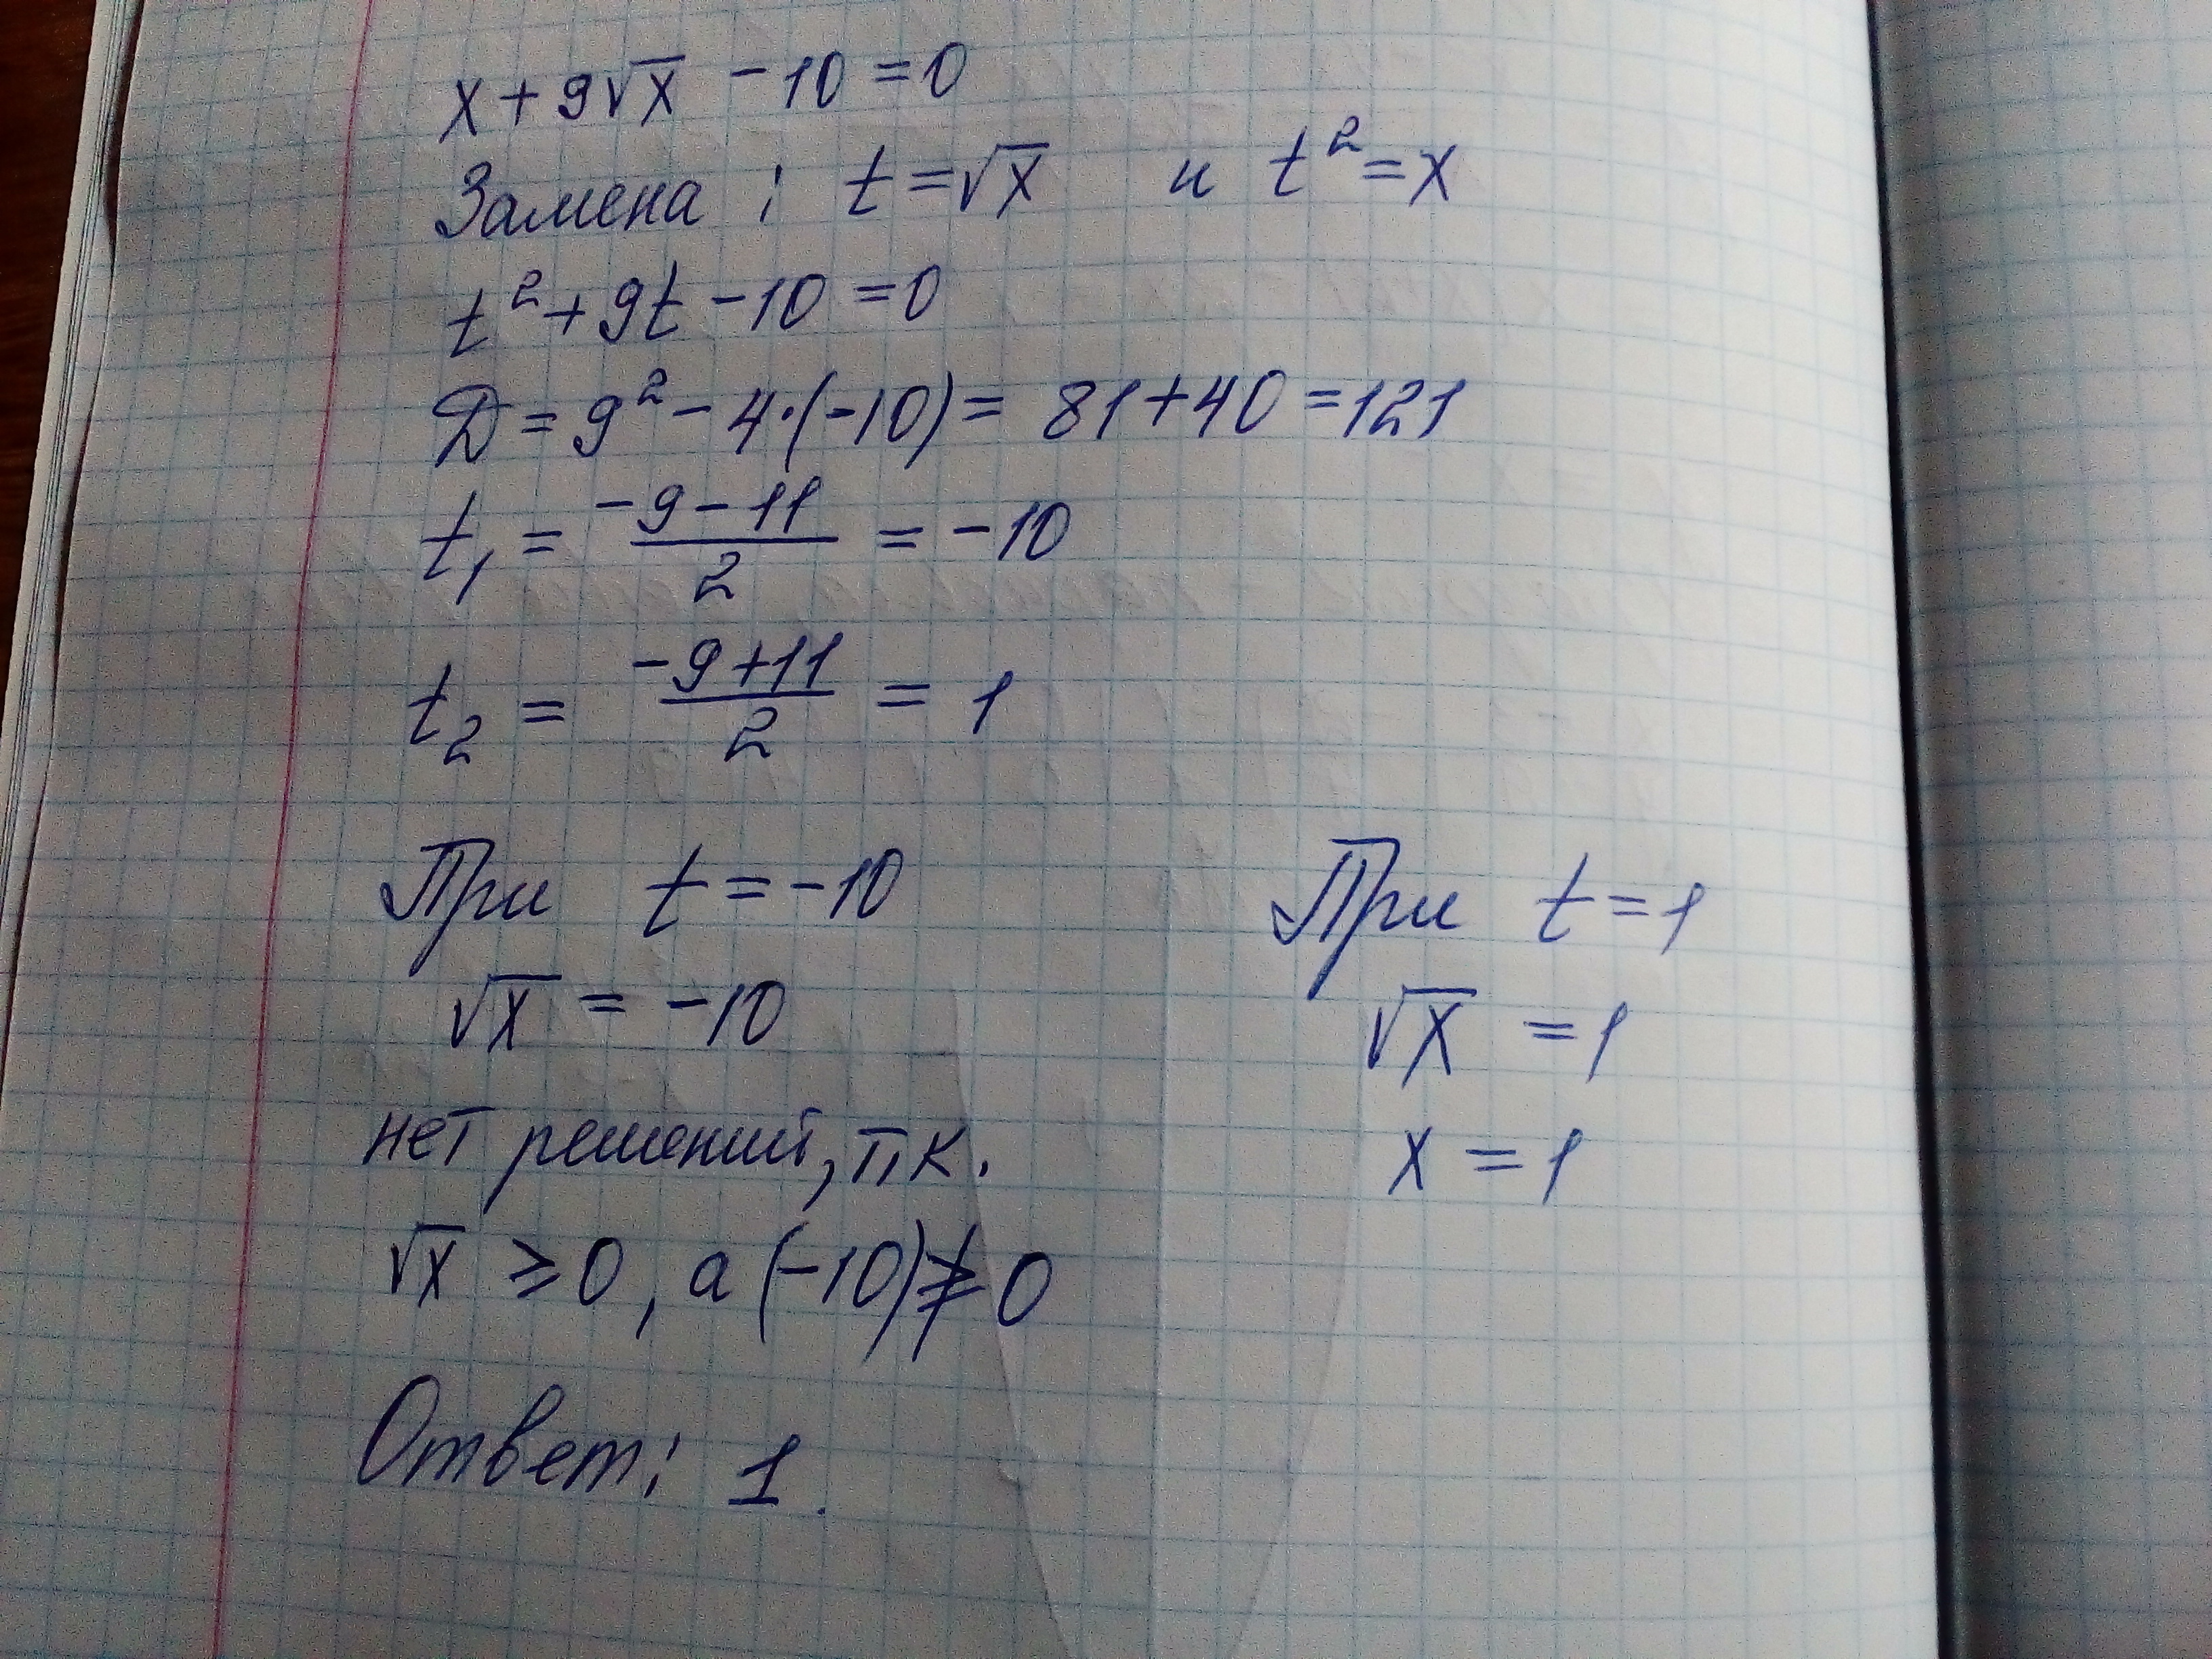 x + 9√x - 10 = 0
Замена: t = √x и t² = x
t² + 9t - 10 = 0
D = 9² - 4·(-10) = 81 + 40 = 121
t₁ = (-9 - 11)/2 = -10
t₂ = (-9 + 11)/2 = 1
При t = -10
√x = -10
нет решений, т.к.
√x ⩾ 0, а (-10) ≱ 0
При t = 1
√x = 1
x = 1
Ответ: 1.